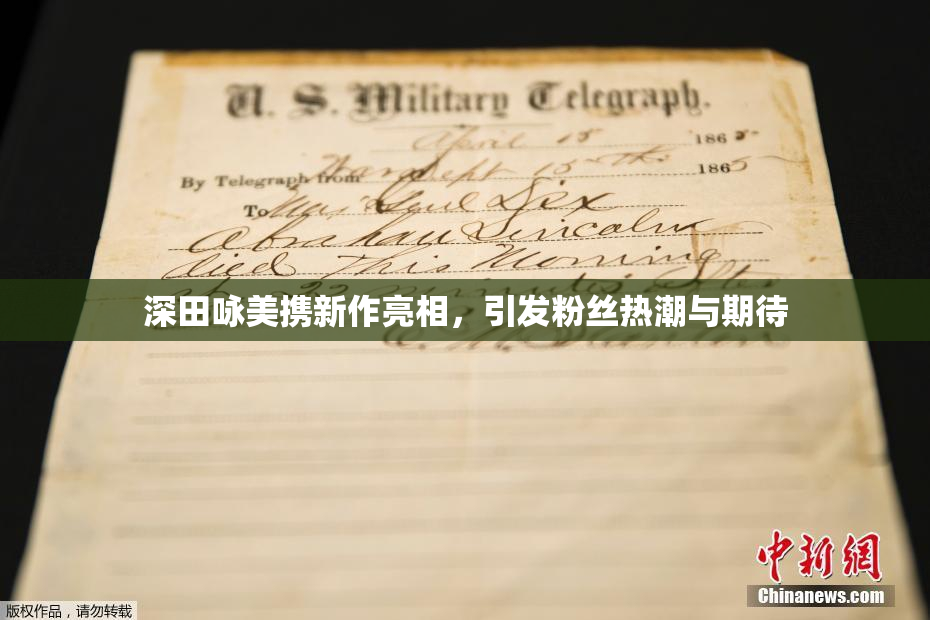 U. S. Military Telegraph.
April 15 1865
By Telegraph from War Dept 15th 1865
To Maj Genl Dix
Abraham Lincoln
died This Morning
22 minutes after
深田咏美携新作亮相，引发粉丝热潮与期待
中新網
Chinanews.com
版权作品，请勿转载